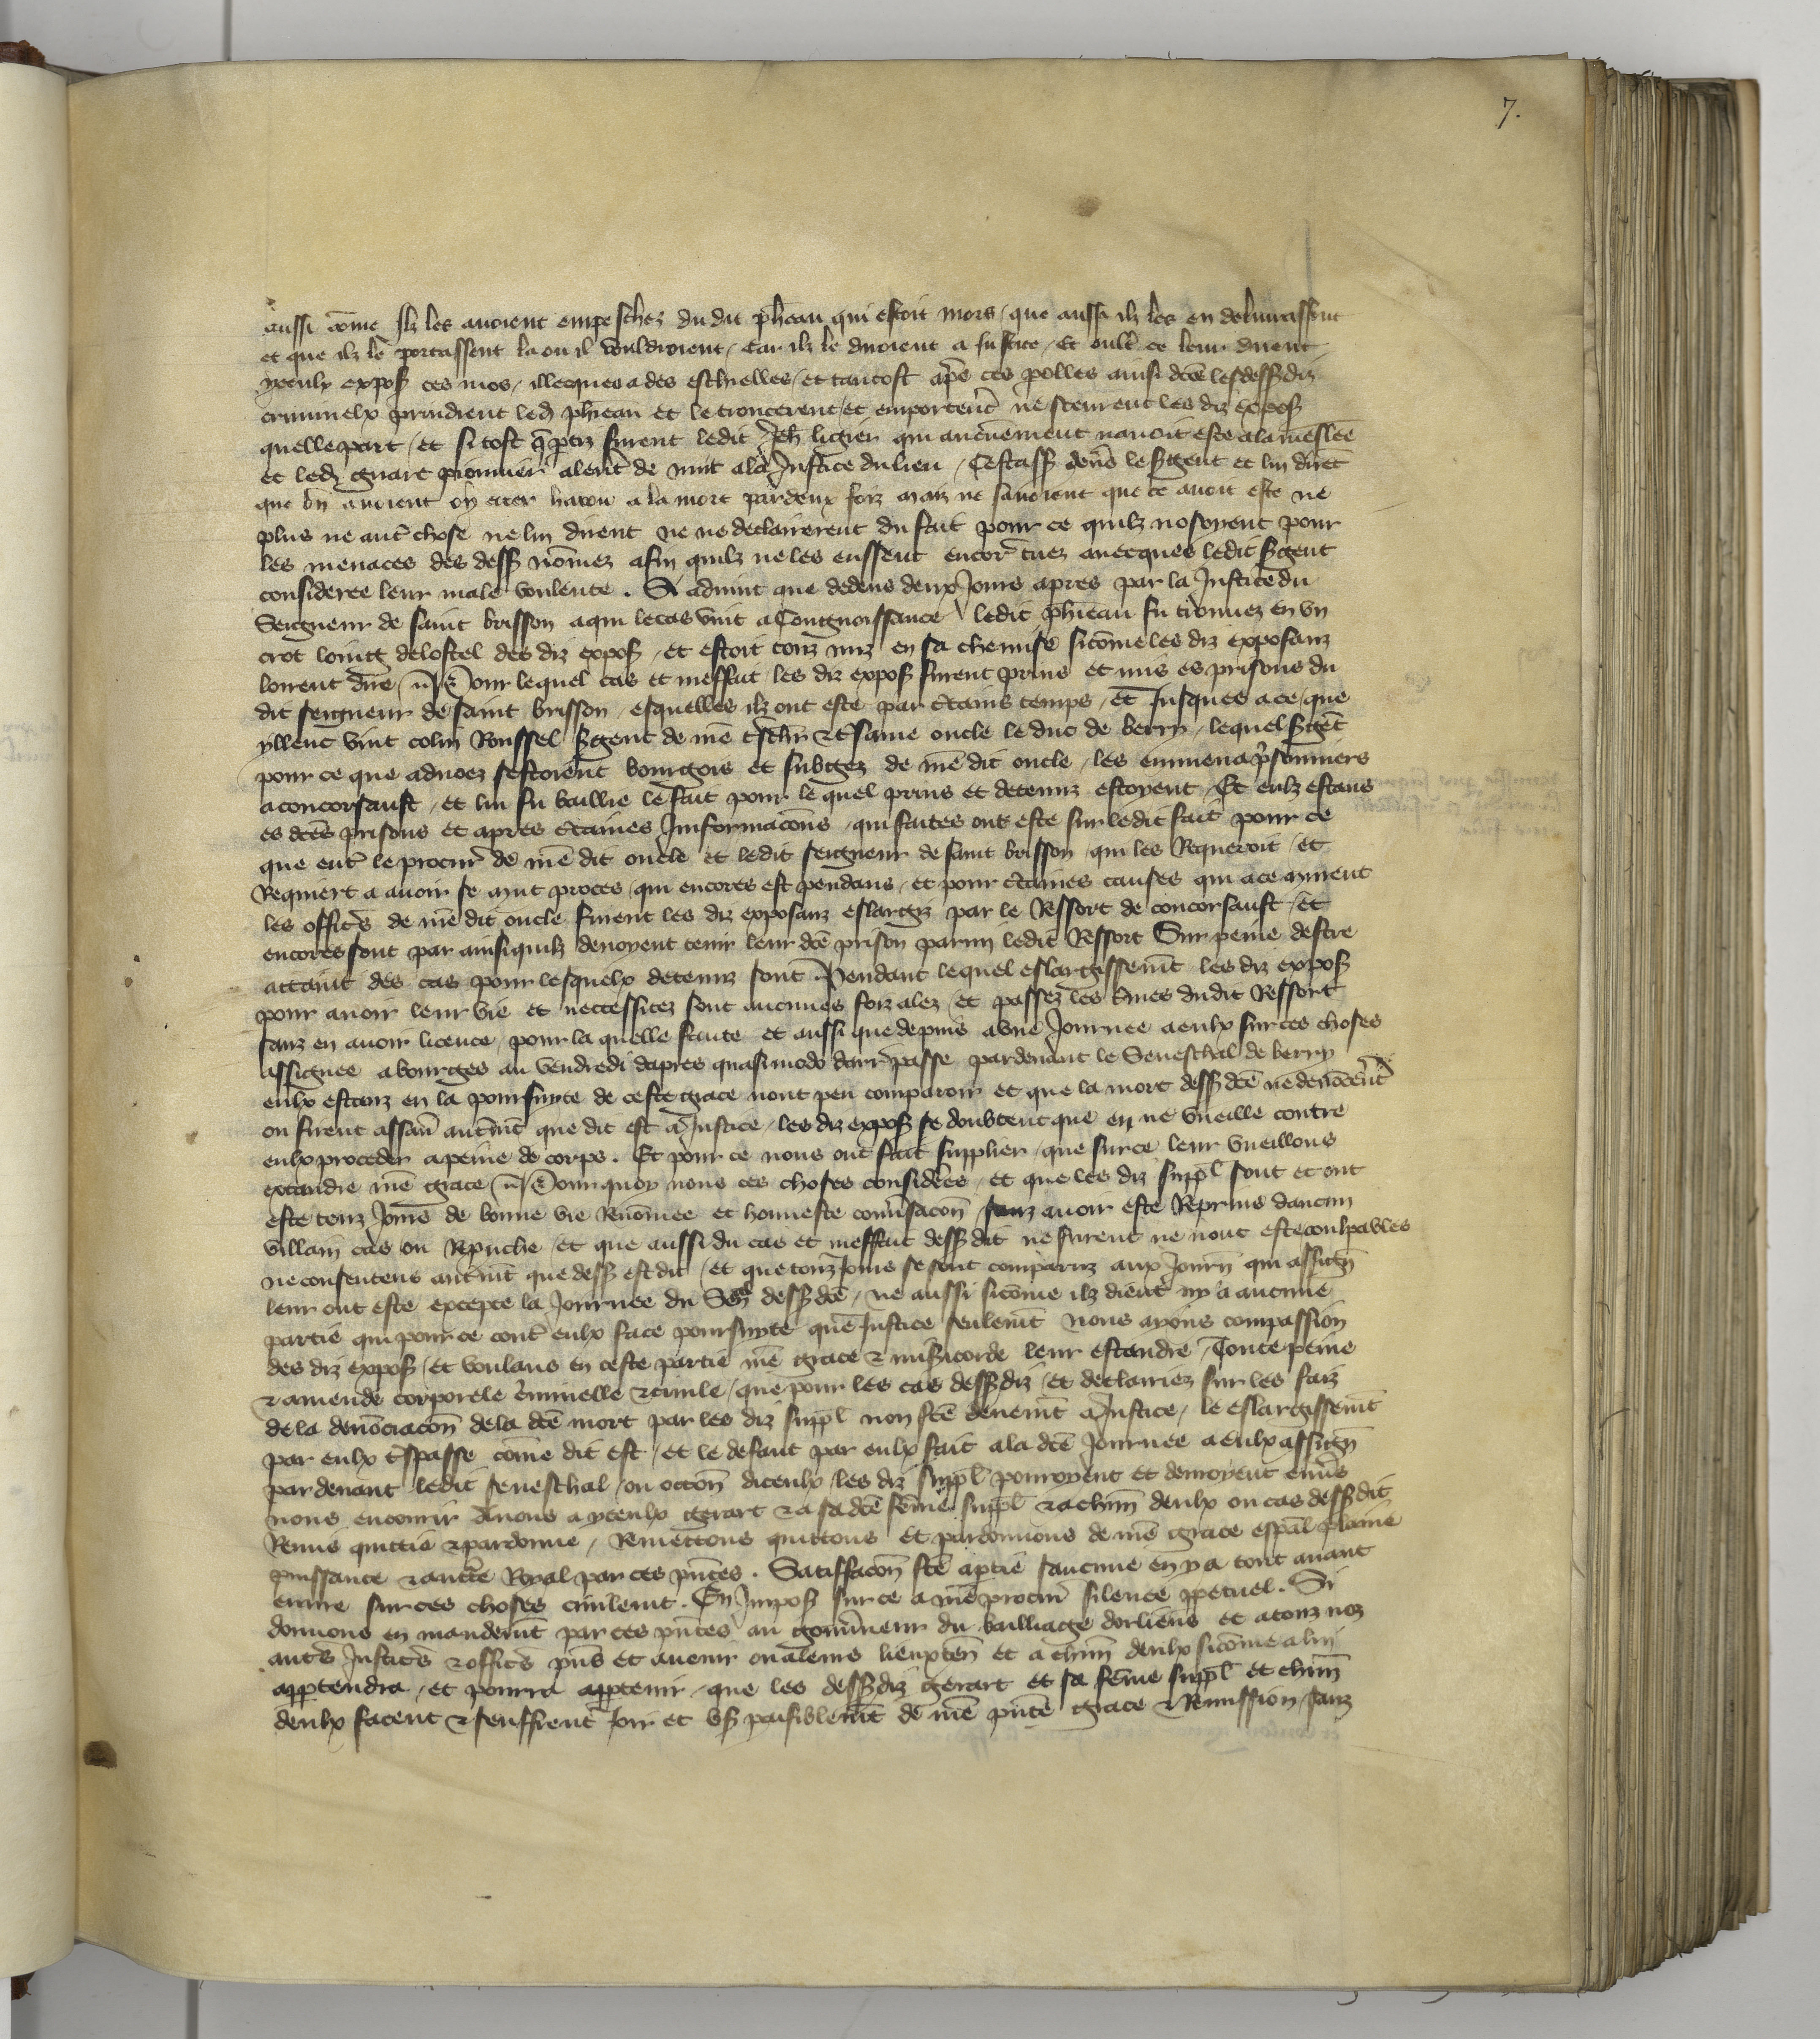 7.
aussi cōme Ilz les auoient empeschez du dit ph̄eau qui estoit mors / que aussi ilz les en deliurassent
et que ilz le portassent la ou il vouldroient / Car ilz le diroient a Justice / Et oult̄ ce leur dirent
yceulx expoſ ces mos / illecques a des eschielles / et tantost ap̄s ces polles ainsi dc̄es lesdessdiz
criminelx prindrent led ph̄eau et le troncerent / et emporter̄t ne sceurent les diz expoſ
quelle part / et si tost q̄ partiz furent ledit Jeh̄ ligier qui aucunement nauoit este a la meslee
et led guart prommier aler̄t de nuit a la Justice du lieu / Cestass deūs le Sgent et lui dirēt
que bn̄ auoient oy crier harou a la mort par deux foiz maiz ne sauoient que ce auoit este ne
plus ne aut̄ chose ne lui dirent ne ne declairerent du fait pour ce quilz nosoyent pour
les menaces des dess nōmez afin quilz ne les eussent encor̄ tuez auecques ledit Sgent
consideree leur male voulente . Si aduint que dedens deux Jours apres par la Justice du
Seigneur de saint brisson a qui le cas vint a Congnoissance ledit ph̄eau fu trouuez en vn
crot loingt de lostel des diz expoſ / et estoit touz nuz en sa chemise sicōme les diz exposanz
loirent dire / Pour lequel cas et meffait les diz expoſ furent prins et mis es prisons du
dit seigneur de saint brisson / esquelles ilz ont este par c̄tains temps / et Jusques a ce que
yllent vint colin Roussel Sgent de nr̄e t̄sch̄r et t̄same oncle le duc de berry / lequel Sgēt
pour ce que aduoez sestoient bourgois et subgez de nr̄e dit oncle / les emmena p̄sonniers
a concorsault / et lui fu baillie le fait pour le quel prins et detenuz estoyent / Et eulz estans
es dc̄es prisons et apres c̄taines Jnformacōns / qui faites ont este sur ledit fait pour ce
que ent̄ le procur̄ de nr̄e dit oncle et ledit seigneur de saint brisson / qui les Requeroit / et
Requiert a auoir se mut proces / qui encores est pendans / et pour c̄taines causes qui a ce murent
les offic̄s de nr̄e dit oncle furent les diz exposanz eslargiz par le Ressort de concorsault / et
encores sont par ainsi quilz deuoyent tenir leur dc̄e prison parmi ledit Ressort Sur peine destre
attaint des cas pour lesquelx detenuz sont Pendant lequel eslargissemt̄ les diz expoſ
pour auoir leur vie et neccessitez sont aucunes foiz alez / et passez les t̄mes dudit Ressort
sanz en auoir licence / pour la quelle faute et aussi que depuis a vne Journee a eulx sur ces choses
assignee a bourges au vendredi dapres quasimodo darr̄ passe pardeuant le Seneschal de berry
eulx estanz en la poursuyte de ceste grace nont peu comparoir et que la mort dess dc̄e ne denōcer̄t
ou firent assaū autrem̄t que dit est a Justice / les diz expoſ se doubtent que en ne vueille contre
eulx proceder a peine de corps . Et pour ce nous ont fait supplier / que sur ce leur vueillons
extandre nr̄e grace / Pourquoy nous ces choses considerees / et que les diz suppl̄ sont et ont
este touz Jours de bonne vie Renōmee et honneste conūsacōn sanz auoir este Reprins daucun
villain cas ou Repruche / et que aussi du cas et meffait dess dit ne furent ne nont este coulpables
ne consentens autrem̄t que dess est dit / et que touz Jours se sont comparuz aux Journ̄ qui assign̄
leur ont este excepte la Journee du Sen̄ dess dc̄e / ne aussi sicōme ilz dient ny a aucune
partie qui pour ce cont̄ eulx face poursuyte que Justice seulem̄t Nous ayons compassion
des diz expoſ / et voulans en ceste partie nr̄e grace & miſicorde leur estandre / Toute peine
& amende corporele c̄iminelle & ciuile / que pour les cas dessdiz / et declairiez sur les faiz
de la denōciacōn de la dc̄e mort par les diz suppl̄ non fc̄e deuemt̄ a Justice / le eslargissemt̄
par eulx t̄spasse cōme dit est / et le defaut par eulx fait a la dc̄e Journee a eulx assign̄
par deuant ledit seneschal / ou occōn diceulx / les diz suppl̄ pouroyent et deuroyent enūs
nous encourir Auons a yceulx gerart & a sa dc̄e fēme suppl̄ & a chūn deulx ou cas dessdit
Remis quittie & pardonne / Remettons quittons et pardonnons de nr̄e grace esp̄al plaine
puissance & auct̄te Royal par ces pn̄tes . Satiffacōn fc̄e a partie saucune en y a tout auant
euure sur ces choses ciuilemt̄ . En Impoſ sur ce a nr̄e procur̄ silence ppetuel . Si
donnons en mandemt̄ par ces pn̄tes au gouūneur du bailliage dorliens et a touz noz
autr̄s Justic̄s & offic̄s pn̄s et auenir ou a leurs lieuxten̄ et a chūn deulx sicōme a lui
appartendra / et pourra appartenir / que les dessdiz gerart et sa fēme suppl̄ et chūn
deulx facent & seuffrent Joir et vſ paisiblemt̄ de nr̄e pn̄te grace & Remission / sanz